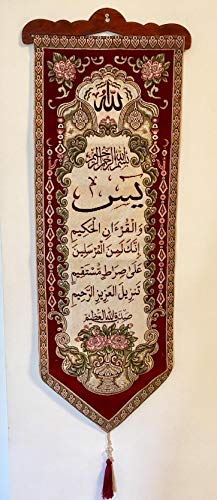 الله
بسم الله الرحمن الرحيم
يس
وَالْقُرْءَانِ الْحَكِيمِ
اِنَّكَ لَمِنَ الْمُرْسَلِينَ
عَلَى صِرَاطٍ مُسْتَقِيمٍ
تَنْزِيلَ الْعَزِيزِ الرَّحِيمِ
صدق الله العظيم